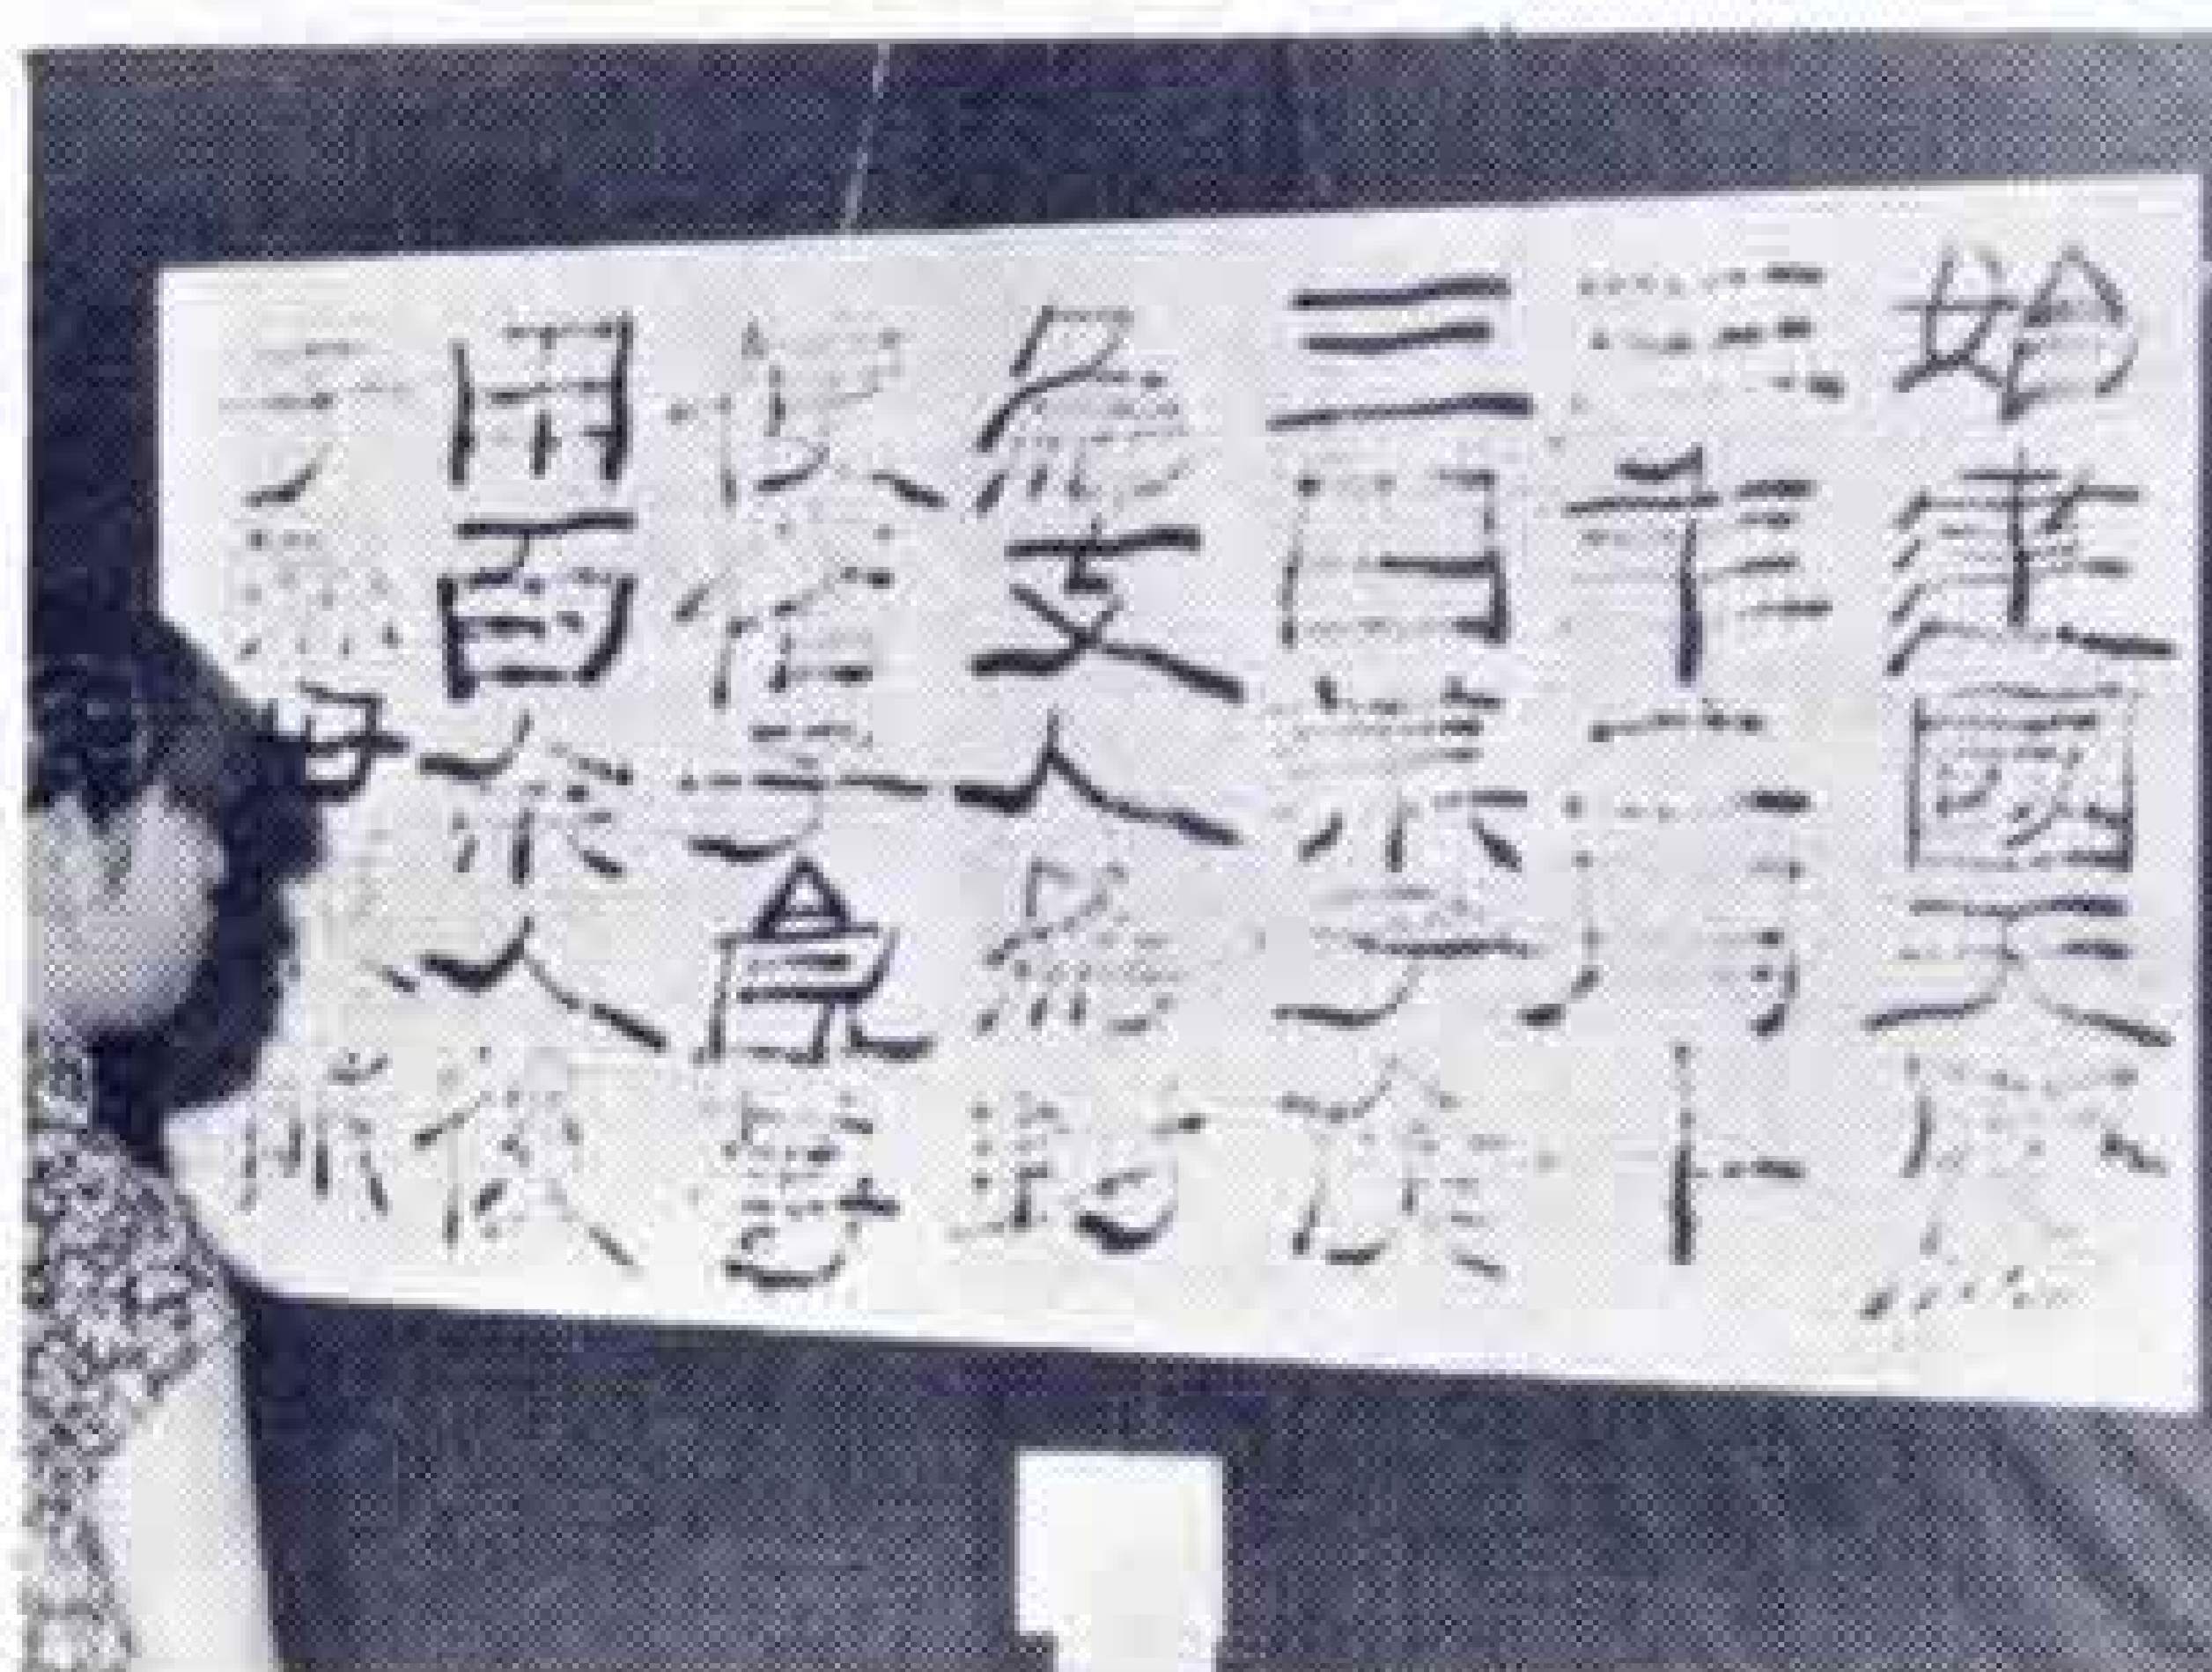 始建國天鳳
三年二月十
三日萊子侯
爲支人爲封
使偖子食等
用百余人後
子孫毋